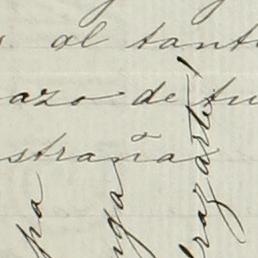 al tant
azo de tu
straña
pa
nga
brazarte!